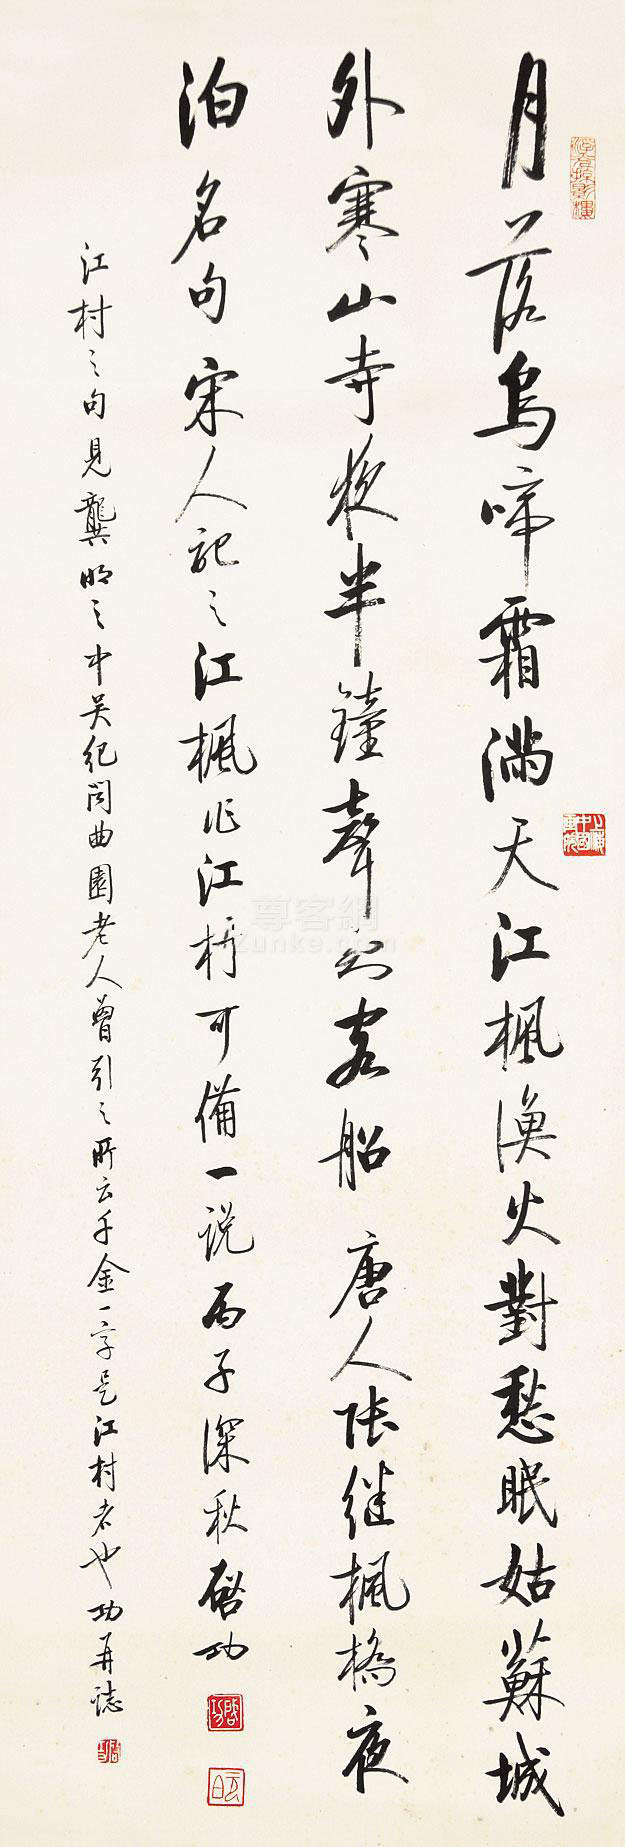 月落烏啼霜滿天江楓漁火對愁眠姑蘇城
外寒山寺夜半鐘聲到客船 唐人張继楓橋夜
泊名句宋人記之江楓作江村可備一說丙子深秋啓功
江村之句見龔明之中吴纪闻曲園老人曾引之所云千金一字是江村者也功再誌
上海中國畫院
啓功
尊客網
Zunke.com